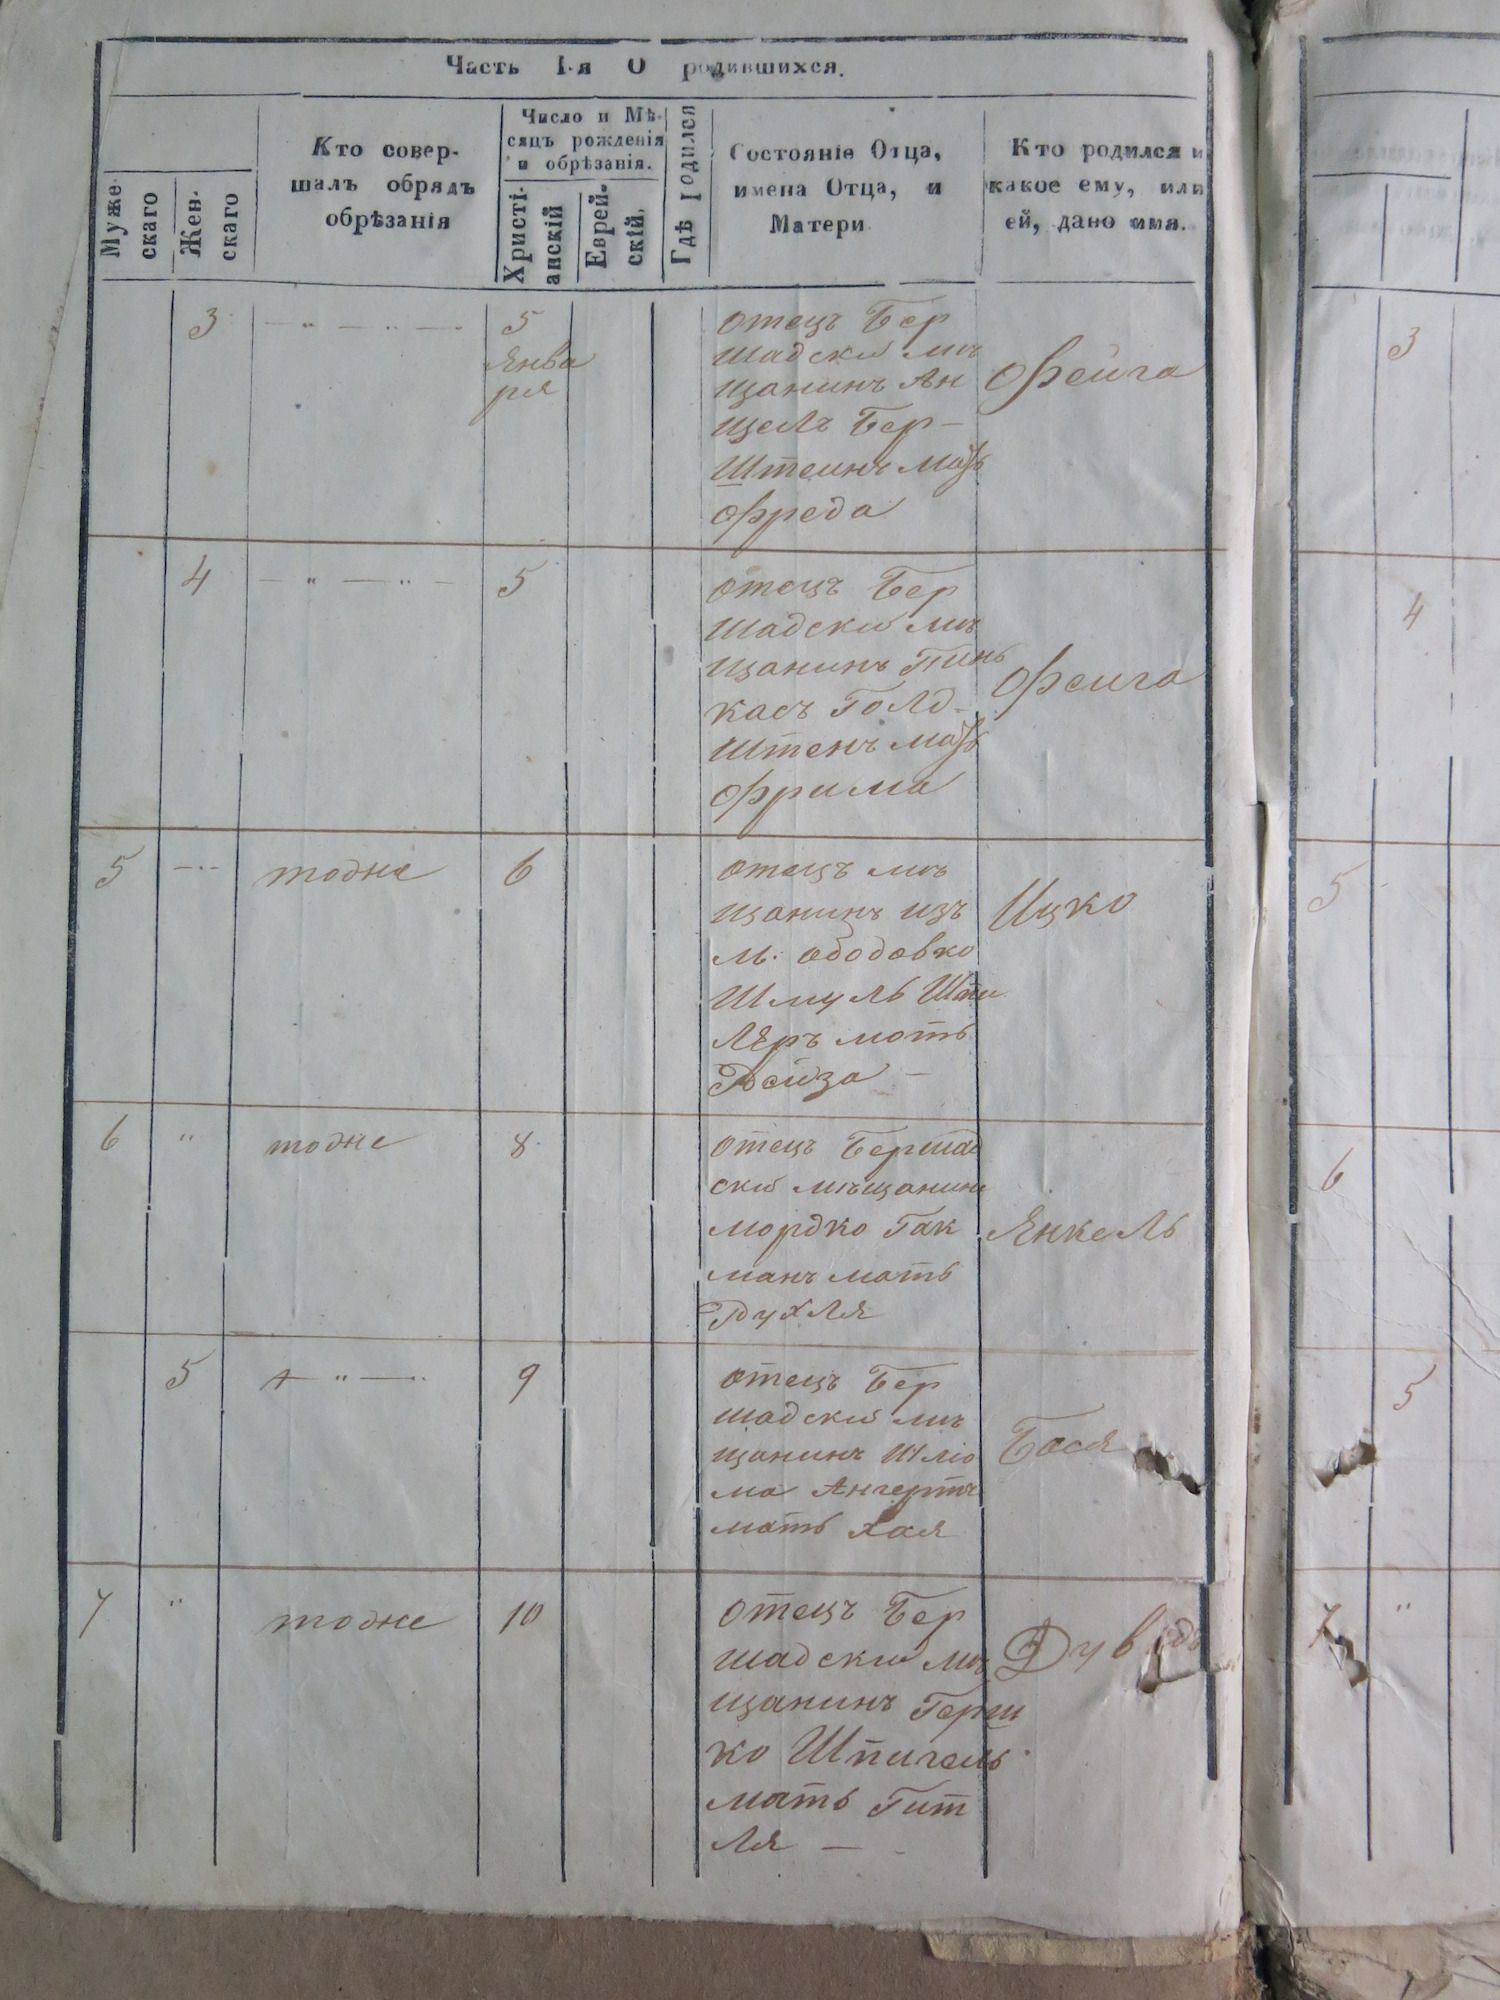 Часть I-я О родившихся.
Муже-
скаго
Жен-
скаго
Кто совер-
шалъ обрядъ
обрѣзанія
Число и Мѣ-
сяцъ рожденія
и обрѣзанія.
Христі-
анскій
Еврей-
скій.
Гдѣ родился
Состояніе Отца,
имена Отца, и
Матери
Кто родился и
какое ему, или
ей, дано имя.
3 — " — " — 5
Янва
ря
отецъ Бер
шадски мѣ
щанинъ Ан
щелъ Бер-
Штеинъ мать
Фреда
Фейга
4 — " — " — 5
отецъ Бер
шадски мѣ
щанинъ Пинь
касъ Голд-
Штенъ мать
Фрима
Феига
5 — тодже 6
отецъ мѣ
щанинъ изъ
м. ободовко
Шмуль Шпи
леръ мать
Рейза —
Ицко
6 " тодже 8
отецъ Бершад
ски мѣщанинъ
мордко Гак
манъ мать
Рухля
Янкель
5 — " — " 9
отецъ Бер
шадски мѣ
щанинъ Шліо
ма Ангертъ
мать хая
Бася
7 " тодже 10
отецъ Бер
шадски мѣ
щанинъ Герш
ко Шпигель
мать Гит
ля —
Дув дъ
3
4
5
6
5
7 "